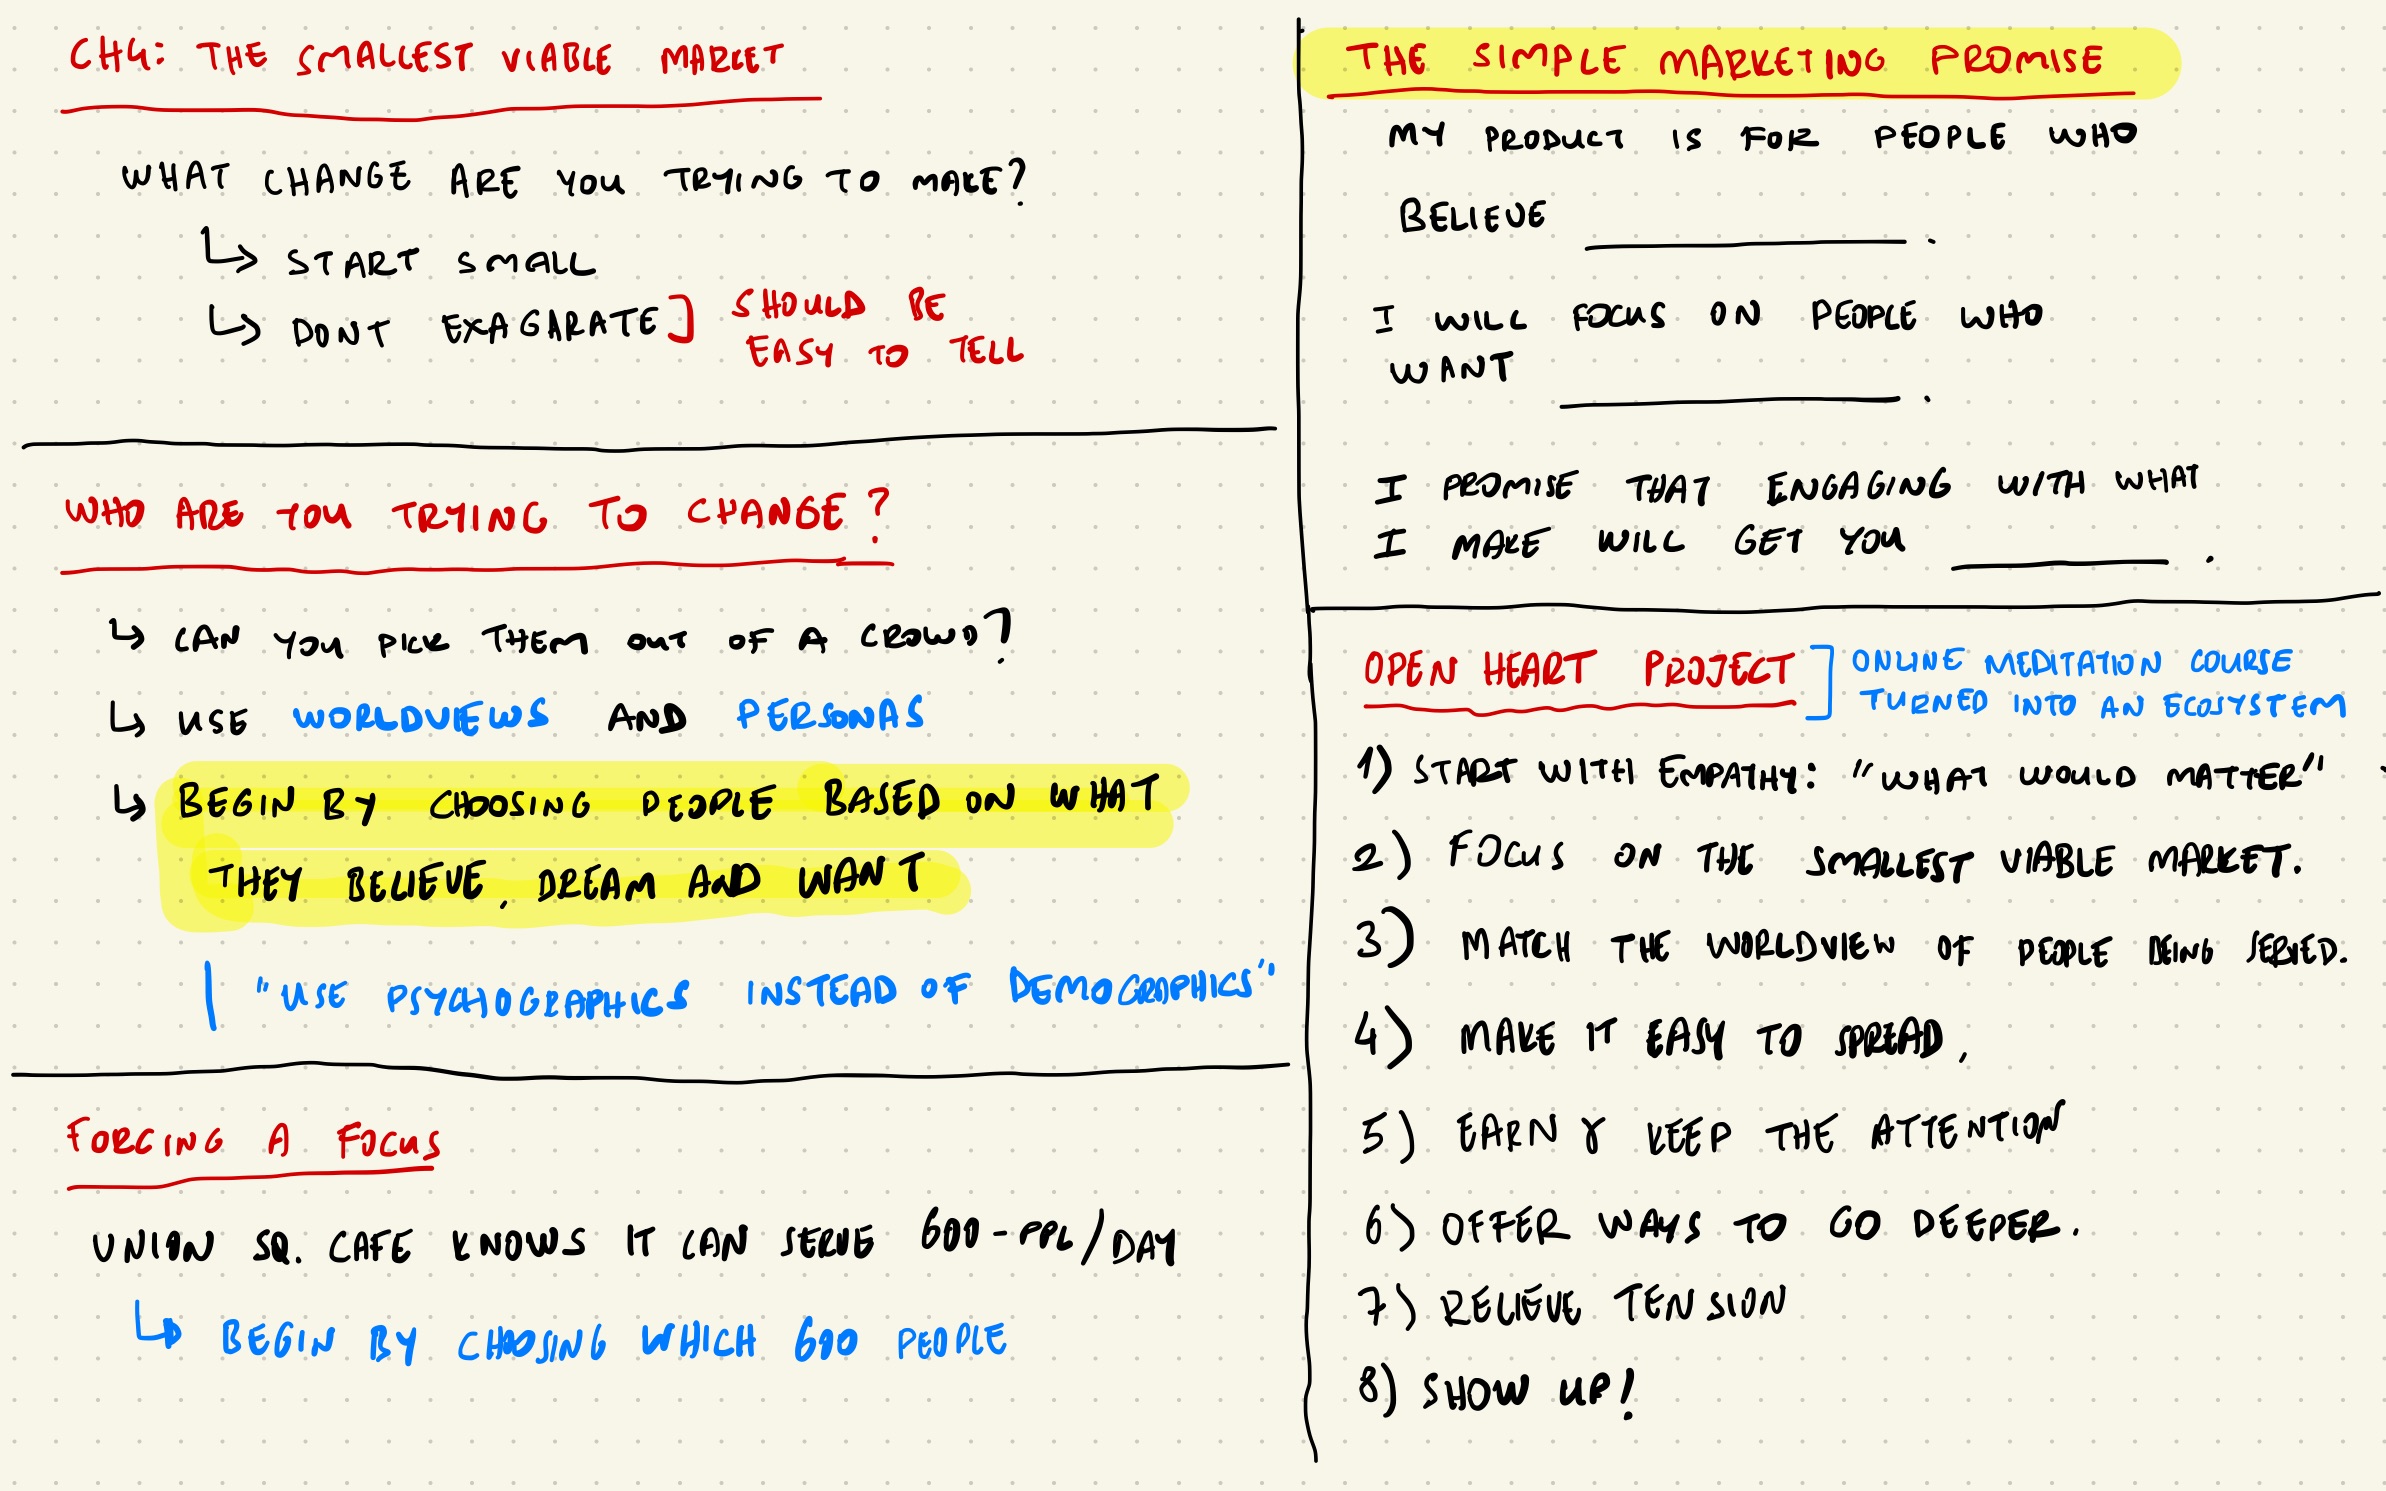 CH4: THE SMALLEST VIABLE MARKET
WHAT CHANGE ARE YOU TRYING TO MAKE?
↳ START SMALL
↳ DONT EXAGARATE] SHOULD BE
EASY TO TELL
WHO ARE YOU TRYING TO CHANGE?
↳ CAN YOU PICK THEM OUT OF A CROWD?
↳ USE WORLDVIEWS AND PERSONAS
↳ BEGIN BY CHOOSING PEOPLE BASED ON WHAT
THEY BELIEVE, DREAM AND WANT
"USE PSYCHOGRAPHICS INSTEAD OF DEMOGRAPHICS"
FORCING A FOCUS
UNION SQ. CAFE KNOWS IT CAN SERVE 600-PPL/DAY
↳ BEGIN BY CHOOSING WHICH 600 PEOPLE
THE SIMPLE MARKETING PROMISE
MY PRODUCT IS FOR PEOPLE WHO
BELIEVE ________.
I WILL FOCUS ON PEOPLE WHO
WANT ________.
I PROMISE THAT ENGAGING WITH WHAT
I MAKE WILL GET YOU ________.
OPEN HEART PROJECT] ONLINE MEDITATION COURSE
TURNED INTO AN ECOSYSTEM
1) START WITH EMPATHY: "WHAT WOULD MATTER"
2) FOCUS ON THE SMALLEST VIABLE MARKET.
3) MATCH THE WORLDVIEW OF PEOPLE BEING SERVED.
4) MAKE IT EASY TO SPREAD,
5) EARN & KEEP THE ATTENTION
6) OFFER WAYS TO GO DEEPER.
7) RELIEVE TENSION
8) SHOW UP!